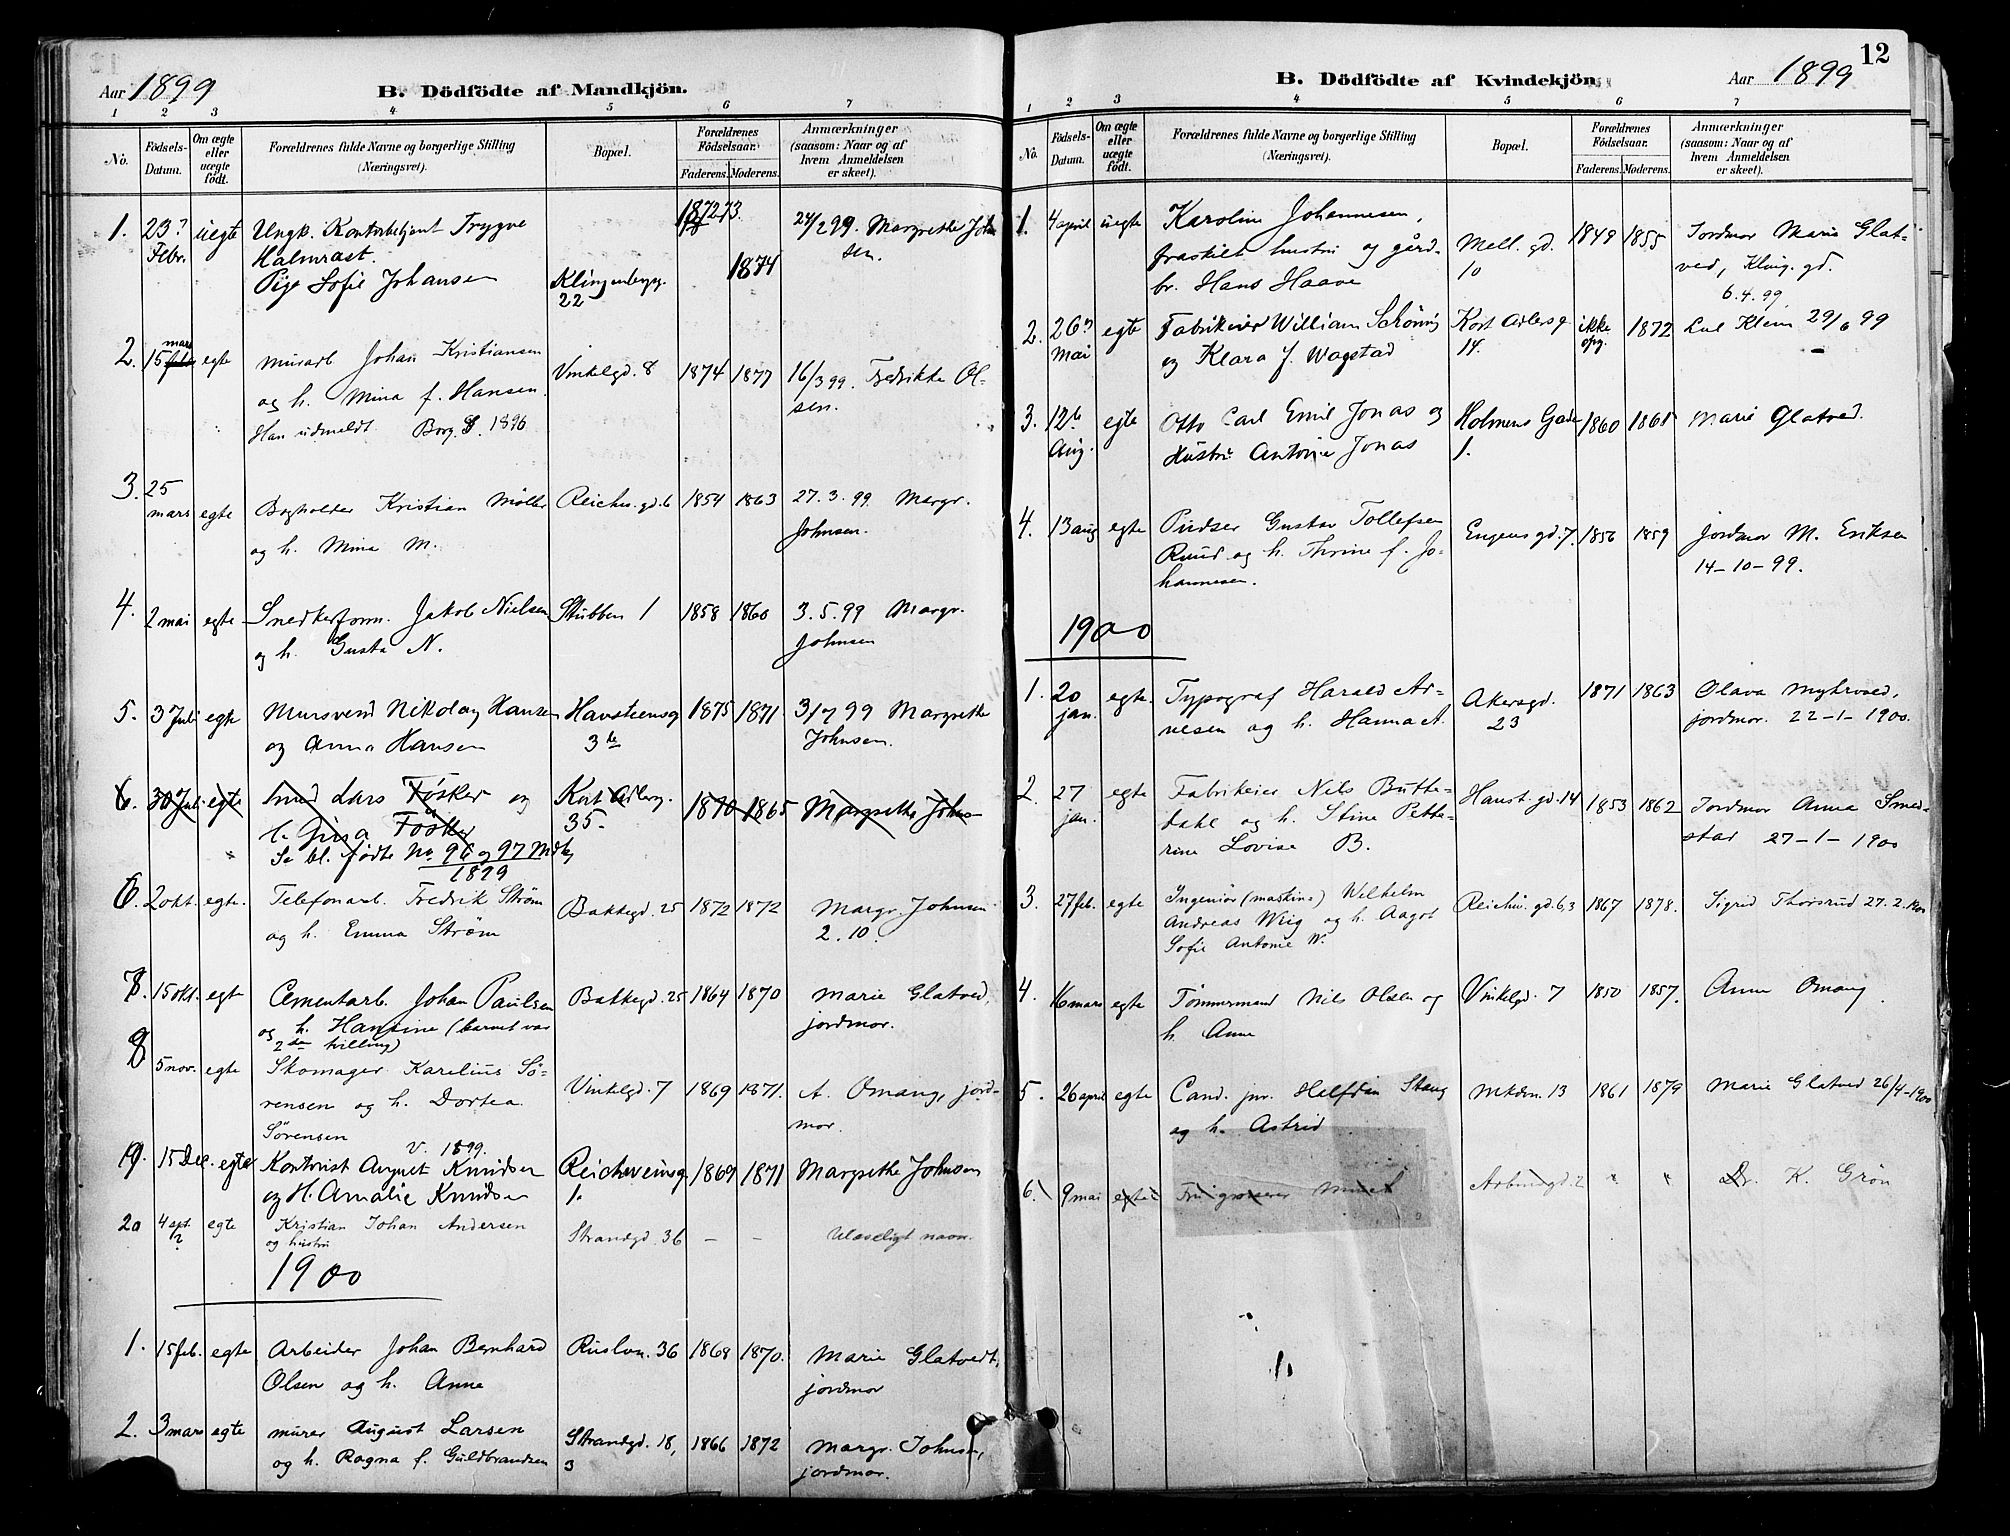 Aar 1899
B. Dödfödte af Mandkjön.
1 2 3 4 5 6 7
No.
Födsels-Datum.
Om ægte eller uægte født.
Forældrenes fulde Navne og borgerlige Stilling
(Næringsvei).
Bopæl.
Forældrenes Födselsaar.
Faderens. Moderens.
Anmærkninger
(saasom: Naar og af
hvem Anmeldelsen
er skeet).
1. 23? Febr. uegte Ungk. Kontorbetjent Trygve 1872 73. 24/2 99. Margrethe John
Halmrast. sen.
Pige Sofie Johansen Klingenbergg. 22 1874
2. 15 mars egte murarb Johan Kristiansen Vinkelgd. 8 1874 1877 16/3 99. Fredrikke Ol-
og h. Mina f. Hansen. sen.
Han udmeldt Borg. S. 1896
3. 25 mars egte Bogholder Kristian Møller Reichw. gd. 6 1854 1863 27. 3. 99 Margr.
og h. Mina M. Johnsen.
4. 2 mai egte Snedkerform. Jakob Nielsen Stubben 1 1858 1860 3. 5. 99 Margr.
og h. Gusta N. Johnsen
5. 3 Juli egte Mursvend Nikolay Hansen Havsteensg 1875 1871 3/7 99 Margrethe
og Anna Hansen 3 Johnsen.
6. 30 Juli egte Smed Lars Fösker og Kort Adlerg. 1870 1865 Margrethe Johns
35.
Se bl. fødte No. 96 og 97 Mdk
1899
6. 2 okt. egte. Telefonarb. Fredrik Strøm Bakkegd. 25 1872 1872 Margr. Johnsen
og h. Emma Strøm 2. 10.
7. 15 okt. egt Cementarb. Johan Paulsen Bakkegd. 25 1864 1870 Marie Glatved,
og h. Hansine (barnet var jordmor.
2den tvilling)
8 5 nov. egte Skomager Karelius Sö- Vinkelgd. 7 1869 1871. A. Omang, jord-
rensen og h. Dortea mor.
Sörensen
V. 1899.
9. 15 Dec. egte Kontorist August Knudsen Reichweinsg 1869 1871 Margrethe Johnsen
og H. Amalie Knudsen 1.
4 sept. egte Kristian Johan Andersen Strandgd. 36 – – Ulæseligt navn.
og hustru
1900
1. 15 feb. egte Arbeider Johan Bernhard Ruslvn. 36 1868 1870. Marie Glatvedt,
Olsen og h. Anne jordmor
2. 3 mars egte murer August Larsen Strandgd. 18, 1866 1872 Margr. Johnsen,
og h. Ragna f. Guldbrandsen 3 jordmor.
12
B. Dödfödte af Kvindekjön.
Aar 1899
1 2 3 4 5 6 7
No.
Födsels-Datum.
Om ægte eller uægte födt.
Forældrenes fulde Navne og borgerlige Stilling
(Næringsvei).
Bopæl.
Forældrenes Födselsaar.
Faderens. Moderens.
Anmærkninger
(saasom: Naar og af
hvem Anmeldelsen
er skeet).
1. 4 april uegte Karoline Johannesen, Mell. gd. 1849 1855 Jordmor Marie Glat-
fraskilt hustru og gård- 10 ved, Kling. gd.
br. Hans Haave 6. 4. 99.
2. 26 Mai egte Fabrikeier William Schönnig Kort Adlersg. ikke opg. 1872 Lul Klem 29/6 99
og Klara f. Wagstad 14.
3. 12 Aug. egte Otto Carl Emil Jonas og Holmens Gade 1860 1865 Marie Glatved.
Hustru Antonie Jonas 1.
4. 13 aug egte Pudser Gustav Tollefsen Engens gd. 7. 1856 1859 Jordmor M. Eriksen
Ruud og h. Thrine f. Jo- 14–10–99.
hannesen.
1900
1. 20 jan. egte. Typograf Harald Ar- Akersgd. 1871 1863 Olava Myhrvold,
nesen og h. Hanna A. 23 jordmor. 22–1–1900.
2. 27 jan. egte Fabrikeier Nils Butte- Haust. gd. 14 1853 1862 Jordmor Anna Smed-
dahl og h. Stine Pette- stad 27–1–1900
rine Lovise B.
3. 27 feb. egte Ingeniør (maskine) Wilhelm Reichw. gd. 6,3 1867 1878. Sigrid Thorsrud 27. 2. 1900
Andreas Wiig og h. Aagot
Sofie Antonie W.
4. 16 mars egte Tömmermand Nils Olsen og Vinkelgd. 7 1850 1857. Anna Omang.
h. Anne
5. 26 april egte Cand. jur. Halfdan Stang Mkdm. 13 1861 1879 Marie Glatved 26/4–1900
og h. Astrid
6. 9 mai egte Fru grosserer Arbingd. 2 " " Dr. K. Grön